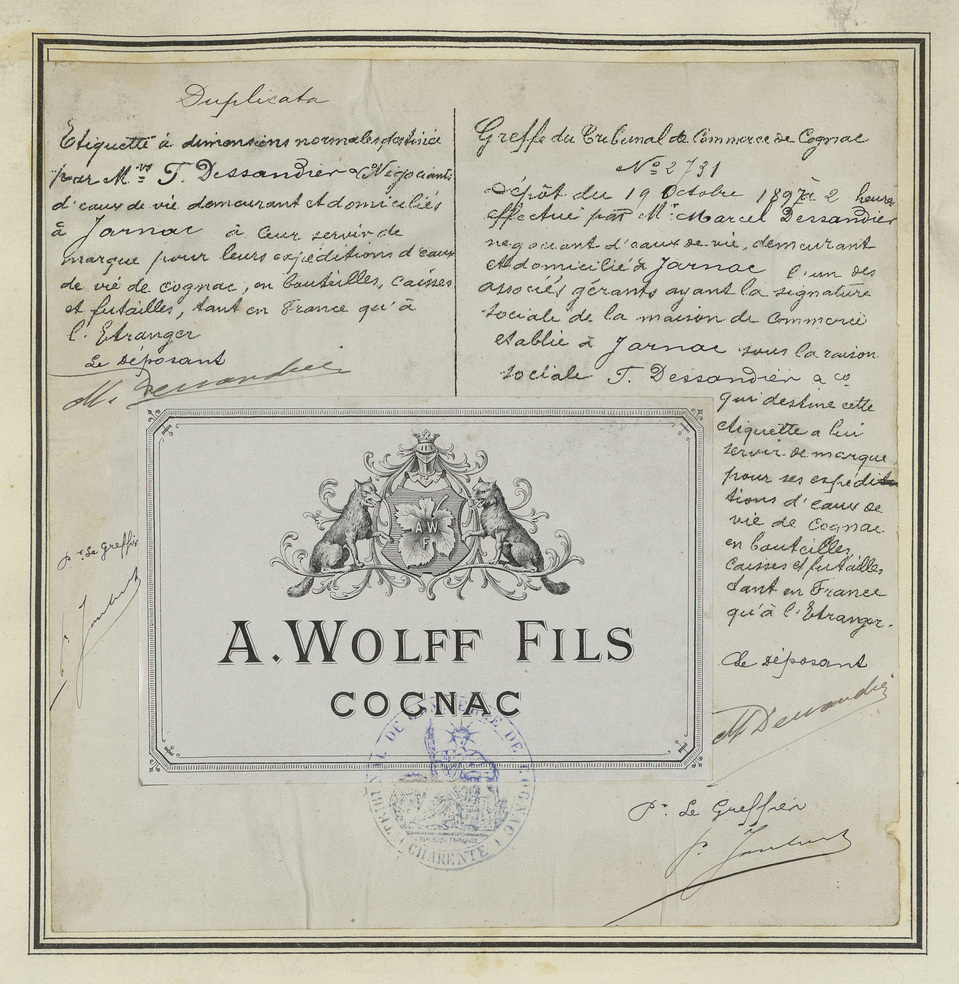 Duplicata
Etiquette à dimensions normales destinée
par Mrs T. Dessandier & Co Négociants
d'eaux de vie demeurant et domiciliés
à Jarnac à leur servir de
marque pour leurs expéditions d'eaux
de vie de cognac, en bouteilles, caisses
et futailles, tant en France qu'à
l'Etranger
Le déposant
M. Dessandier
Greffe du Tribunal de Commerce de Cognac
No 2731
Dépôt du 19 Octobre 1897 à 2 heures
effectué par Mr Marcel Dessandier
négociant d'eaux de vie, demeurant
et domicilié à Jarnac l'un des
associés gérants ayant la signature
sociale de la maison de Commerce
établie à Jarnac sous la raison
sociale T. Dessandier & co
qui destine cette
étiquette a lui
servir de marque
pour ses expédi
tions d'eaux de
vie de Cognac
en bouteilles,
caisses et futailles
tant en France
qu'à l'Etranger.
Le déposant
M Dessandier
A W
F
A. WOLFF FILS
COGNAC
TRIBUNAL DE COMMERCE DE COGNAC
(CHARENTE)
pr Le Greffier
pr Le Greffier